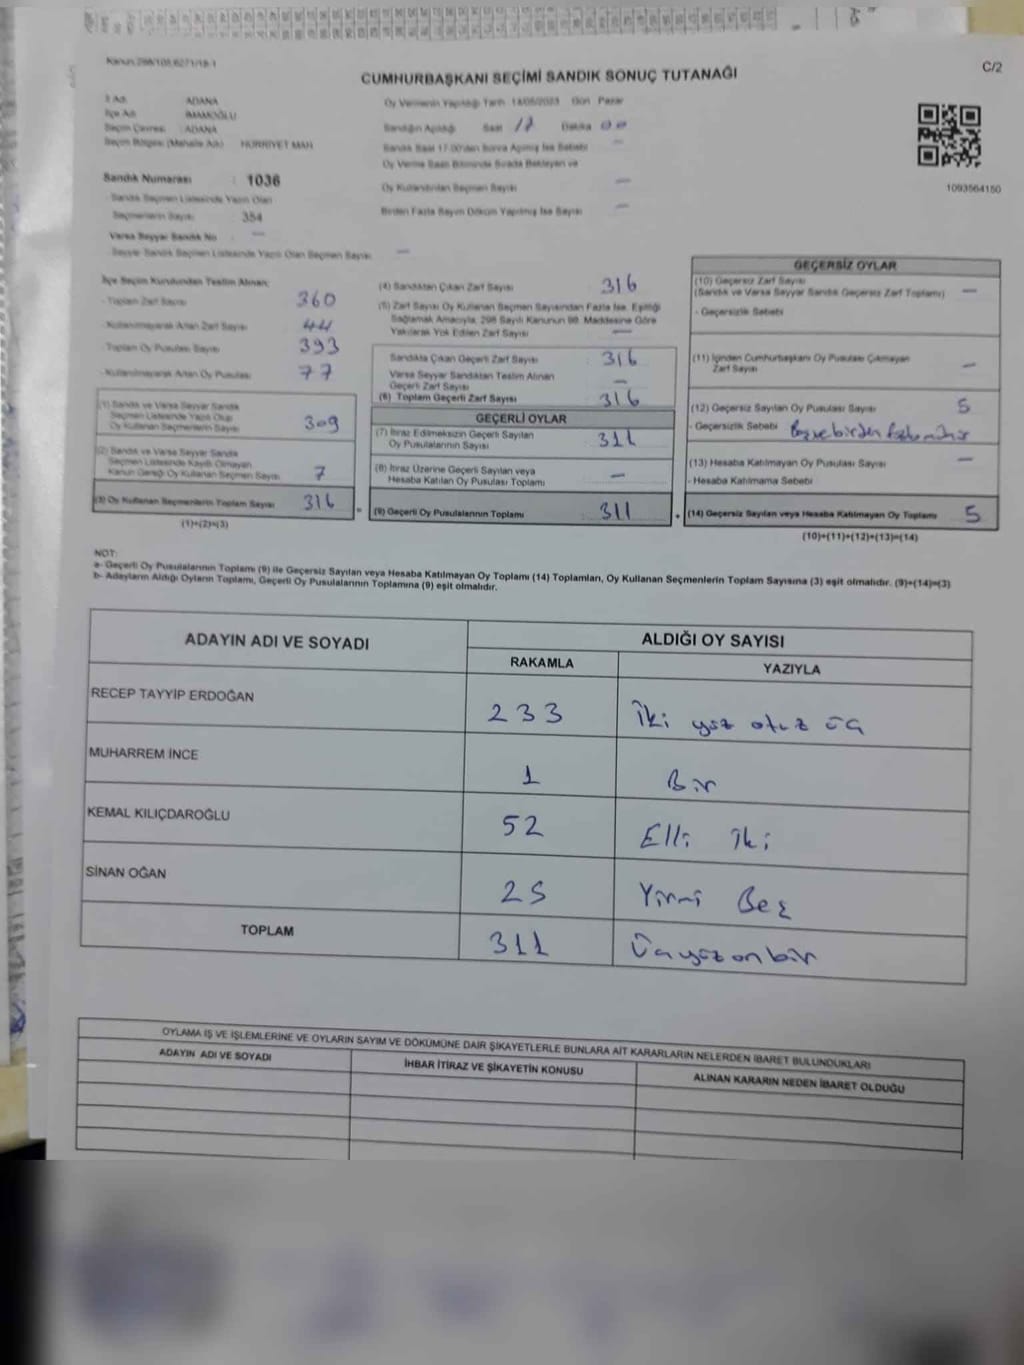 Kanun:298/105.6271/18-1
C/2
CUMHURBAŞKANI SEÇİMİ SANDIK SONUÇ TUTANAĞI
İl Adı ADANA
İlçe Adı İMAMOĞLU
Seçim Çevresi : ADANA
Seçim Bölgesi (Mahalle Adı) HÜRRİYET MAH
Oy Vermenin Yapıldığı Tarih 14/05/2023 Gün Pazar
Sandığın Açıldığı Saat 17 Dakika 00
Sandık Saat 17.00'den Sonra Açılmış İse Sebebi —
Oy Verme Saati Bitiminde Sırada Bekleyen ve
Oy Kullandırılan Seçmen Sayısı —
Birden Fazla Sayım Döküm Yapılmış İse Sayısı —
1093564150
Sandık Numarası : 1036
Sandık Seçmen Listesinde Yazılı Olan
Seçmenlerin Sayısı 354
Varsa Seyyar Sandık No —
Seyyar Sandık Seçmen Listesinde Yazılı Olan Seçmen Sayısı —
İlçe Seçim Kurulundan Teslim Alınan;
- Toplam Zarf Sayısı 360
- Kullanılmayarak Artan Zarf Sayısı 44
- Toplam Oy Pusulası Sayısı 393
- Kullanılmayarak Artan Oy Pusulası 77
(1) Sandık ve Varsa Seyyar Sandık
Seçmen Listesinde Yazılı Olup
Oy Kullanan Seçmenlerin Sayısı 309
(2) Sandık ve Varsa Seyyar Sandık
Seçmen Listesinde Kayıtlı Olmayan
Kanun Gereği Oy Kullanan Seçmen Sayısı 7
(3) Oy Kullanan Seçmenlerin Toplam Sayısı 316
(1)+(2)=(3)
(4) Sandıktan Çıkan Zarf Sayısı 316
(5) Zarf Sayısı Oy Kullanan Seçmen Sayısından Fazla İse, Eşitliği
Sağlamak Amacıyla, 298 Sayılı Kanunun 98. Maddesine Göre
Yakılarak Yok Edilen Zarf Sayısı —
Sandıkta Çıkan Geçerli Zarf Sayısı 316
Varsa Seyyar Sandıktan Teslim Alınan
Geçerli Zarf Sayısı —
(6) Toplam Geçerli Zarf Sayısı 316
GEÇERLİ OYLAR
(7) İtiraz Edilmeksizin Geçerli Sayılan
Oy Pusulalarının Sayısı 311
(8) İtiraz Üzerine Geçerli Sayılan veya
Hesaba Katılan Oy Pusulası Toplamı —
(9) Geçerli Oy Pusulalarının Toplamı 311
GEÇERSİZ OYLAR
(10) Geçersiz Zarf Sayısı
(Sandık ve Varsa Seyyar Sandık Geçersiz Zarf Toplamı) —
- Geçersizlik Sebebi
(11) İçinden Cumhurbaşkanı Oy Pusulası Çıkmayan
Zarf Sayısı —
(12) Geçersiz Sayılan Oy Pusulası Sayısı 5
- Geçersizlik Sebebi Boş ve birden fazla mühür
(13) Hesaba Katılmayan Oy Pusulası Sayısı —
- Hesaba Katılmama Sebebi
(14) Geçersiz Sayılan veya Hesaba Katılmayan Oy Toplamı 5
(10)+(11)+(12)+(13)=(14)
NOT:
a- Geçerli Oy Pusulasının Toplamı (9) ile Geçersiz Sayılan veya Hesaba Katılmayan Oy Toplamı (14) Toplamları, Oy Kullanan Seçmenlerin Toplam Sayısına (3) eşit olmalıdır. (9)+(14)=(3)
b- Adayların Aldığı Oyların Toplamı, Geçerli Oy Pusulalarının Toplamına (9) eşit olmalıdır.
ADAYIN ADI VE SOYADI
ALDIĞI OY SAYISI
RAKAMLA YAZIYLA
RECEP TAYYİP ERDOĞAN 233 İki yüz otuz üç
MUHARREM İNCE 1 Bir
KEMAL KILIÇDAROĞLU 52 Elli iki
SİNAN OĞAN 25 Yirmi Beş
TOPLAM 311 Üçyüz on bir
OYLAMA İŞ VE İŞLEMLERİNE VE OYLARIN SAYIM VE DÖKÜMÜNE DAİR ŞİKAYETLERLE BUNLARA AİT KARARLARIN NELERDEN İBARET BULUNDUKLARI
ADAYIN ADI VE SOYADI İHBAR İTİRAZ VE ŞİKAYETİN KONUSU ALINAN KARARIN NEDEN İBARET OLDUĞU